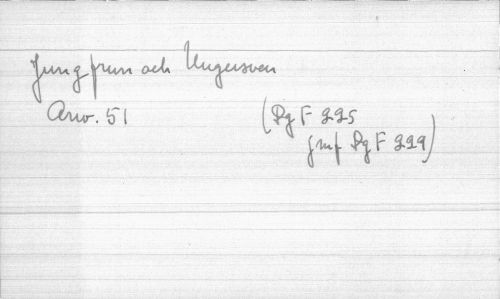 Jungfrun och Ungersven
Arw. 51
(Dg F 225
jmf Dg F 229)